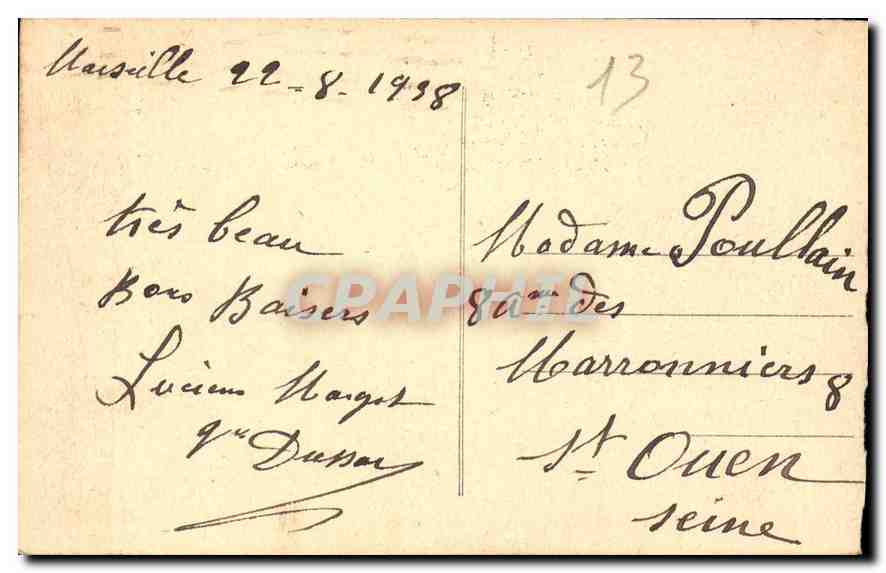 Marseille 22-8-1938
13
très beau
Bons Baisers
Lucien Margot
Madame Poullain
8 Ave des
Marronniers 8
St Ouen
Seine
CPAPHIL